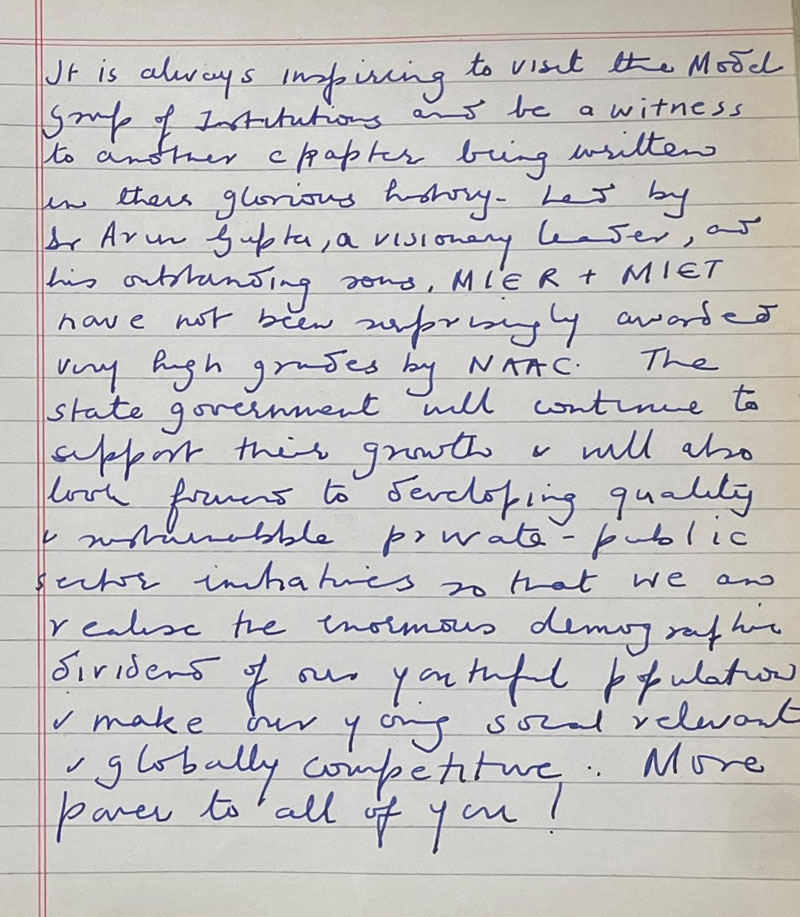 It is always inspiring to visit the Model
Group of Institutions and be a witness
to another chapter being written
in their glorious history. Led by
Dr Arun Gupta, a visionary leader, and
his outstanding sons, MIER + MIET
have not been surprisingly awarded
very high grades by NAAC. The
state government will continue to
support their growth & will also
look forward to developing quality
& sustainable private-public
sector initiatives so that we can
realise the enormous demographic
dividend of our youthful population
& make our young social relevant
& globally competitive. More
power to all of you!